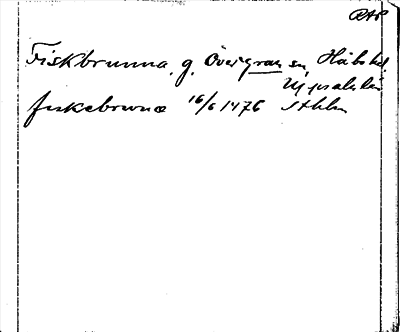 RAP
Fiskbrunna, g. Övergran sn, Håbo hd,
Uppsala län
fiskebrwnæ 16/6 1476 Sthlm